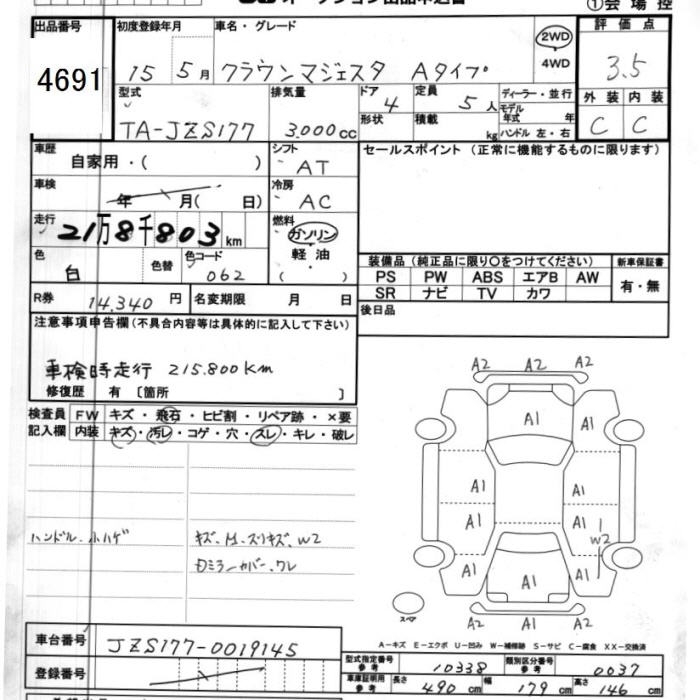 ①会場控
出品番号
4691
初度登録年月
15 5月
車名・グレード
クラウンマジェスタ Aタイプ
2WD
4WD
評価点
3.5
外装 内装
C C
型式
TA-JZS177
排気量
3.000cc
ドア
4
形状
定員
5人
積載
kg
ディーラー・並行
モデル年式 年
ハンドル 左・右
車歴
自家用・( )
シフト
AT
セールスポイント (正常に機能するものに限ります)
車検
年 月( 日)
冷房
AC
走行
21万8千803km
燃料
ガソリン
軽油
( )
色
白
色替
色コード
062
装備品(純正品に限り○をつけてください)
新車保証書
PS PW ABS エアB AW
SR ナビ TV カワ
有・無
R券 14,340円
名変期限 月 日
後日品
注意事項申告欄(不具合内容等は具体的に記入して下さい)
車検時走行 215.800km
修復歴 有 [箇所 ]
検査員記入欄
FW キズ・飛石・ヒビ割・リペア跡・×要
内装 キズ・汚レ・コゲ・穴・スレ・キレ・破レ
ハンドル、小ハゲ
W2
A2 A2 A2
A1
A1 A1
A1 A1
W2
A1 A1 A1
A2 A2 A2
スペア
A-キズ E-エクボ U-凹み W-補修跡 S-サビ C-腐食 XX-交換済
車台番号
JZS177-0019145
登録番号
型式指定番号 参考 10338
類別区分番号 参考 0037
車庫証明用 参考 長さ 490cm 幅 179cm 高さ 146cm